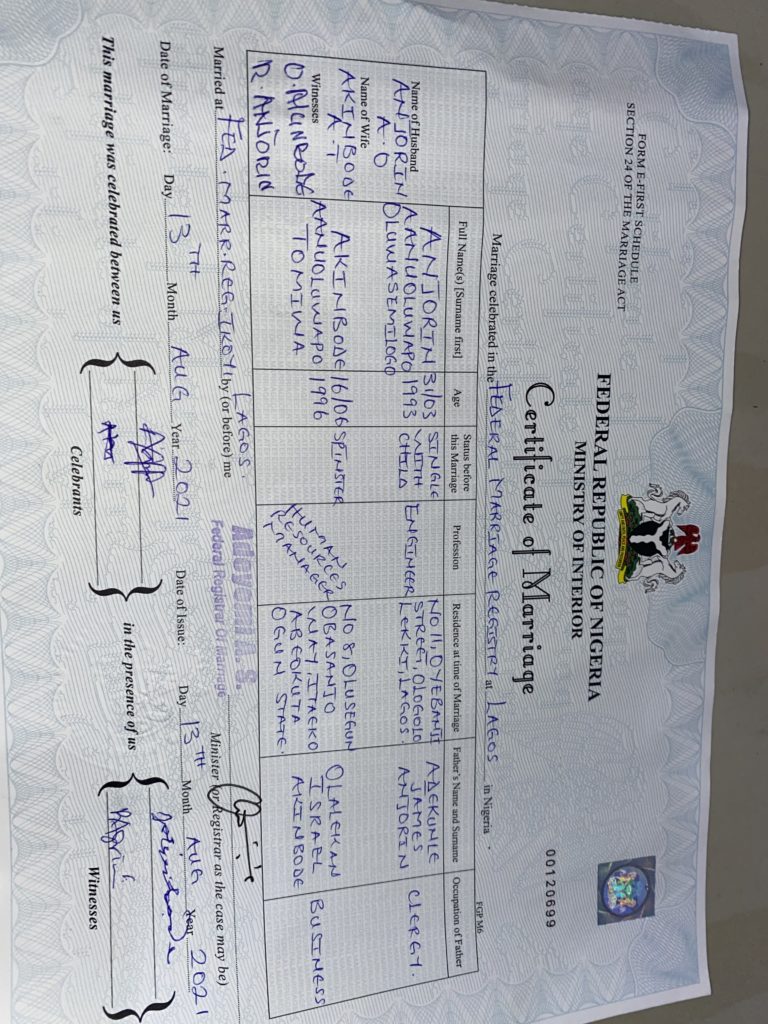 FORM E-FIRST SCHEDULE
SECTION 24 OF THE MARRIAGE ACT
FEDERAL REPUBLIC OF NIGERIA
MINISTRY OF INTERIOR
00120699
Certificate of Marriage
FGP M6
Marriage celebrated in the FEDERAL MARRIAGE REGISTRY at LAGOS in Nigeria.
Full Name(s) [Surname first]
Age
Status before
this Marriage
Profession
Residence at time of Marriage
Father's Name and Surname
Occupation of Father
Name of Husband
ANJORIN
A.O
ANJORIN
AANUOLUWAPO
OLUWASEMILOGO
31/03
1993
SINGLE
WITH
CHILD
ENGINEER
NO.11, OYEBANJI
STREET, OLOGOLO
LEKKI, LAGOS.
ADEKUNLE
JAMES
ANJORIN
CLERGY.
Name of Wife
AKINBODE
A-T
AKINBODE
AANUOLUWAPO
TOMIWA
16/06
1996
SPINSTER
HUMAN
RESOURCES
MANAGER
NO 8, OLUSEGUN
OBASANJO
WAY, ITAEKO
ABEOKUTA
OGUN STATE.
OLALEKAN
ISRAEL
AKINBODE
BUSINESS
Witnesses
R. ANJORIN
LAGOS.
Married at FED. MARR. REG. IKOYI by (or before) me
Adeyemi A. S.
Federal Registrar Of Marriage
Minister (or Registrar as the case may be)
Date of Marriage: Day 13TH Month AUG Year 2021 Date of Issue: Day 13TH Month AUG Year 2021
This marriage was celebrated between us
Celebrants
in the presence of us
Witnesses